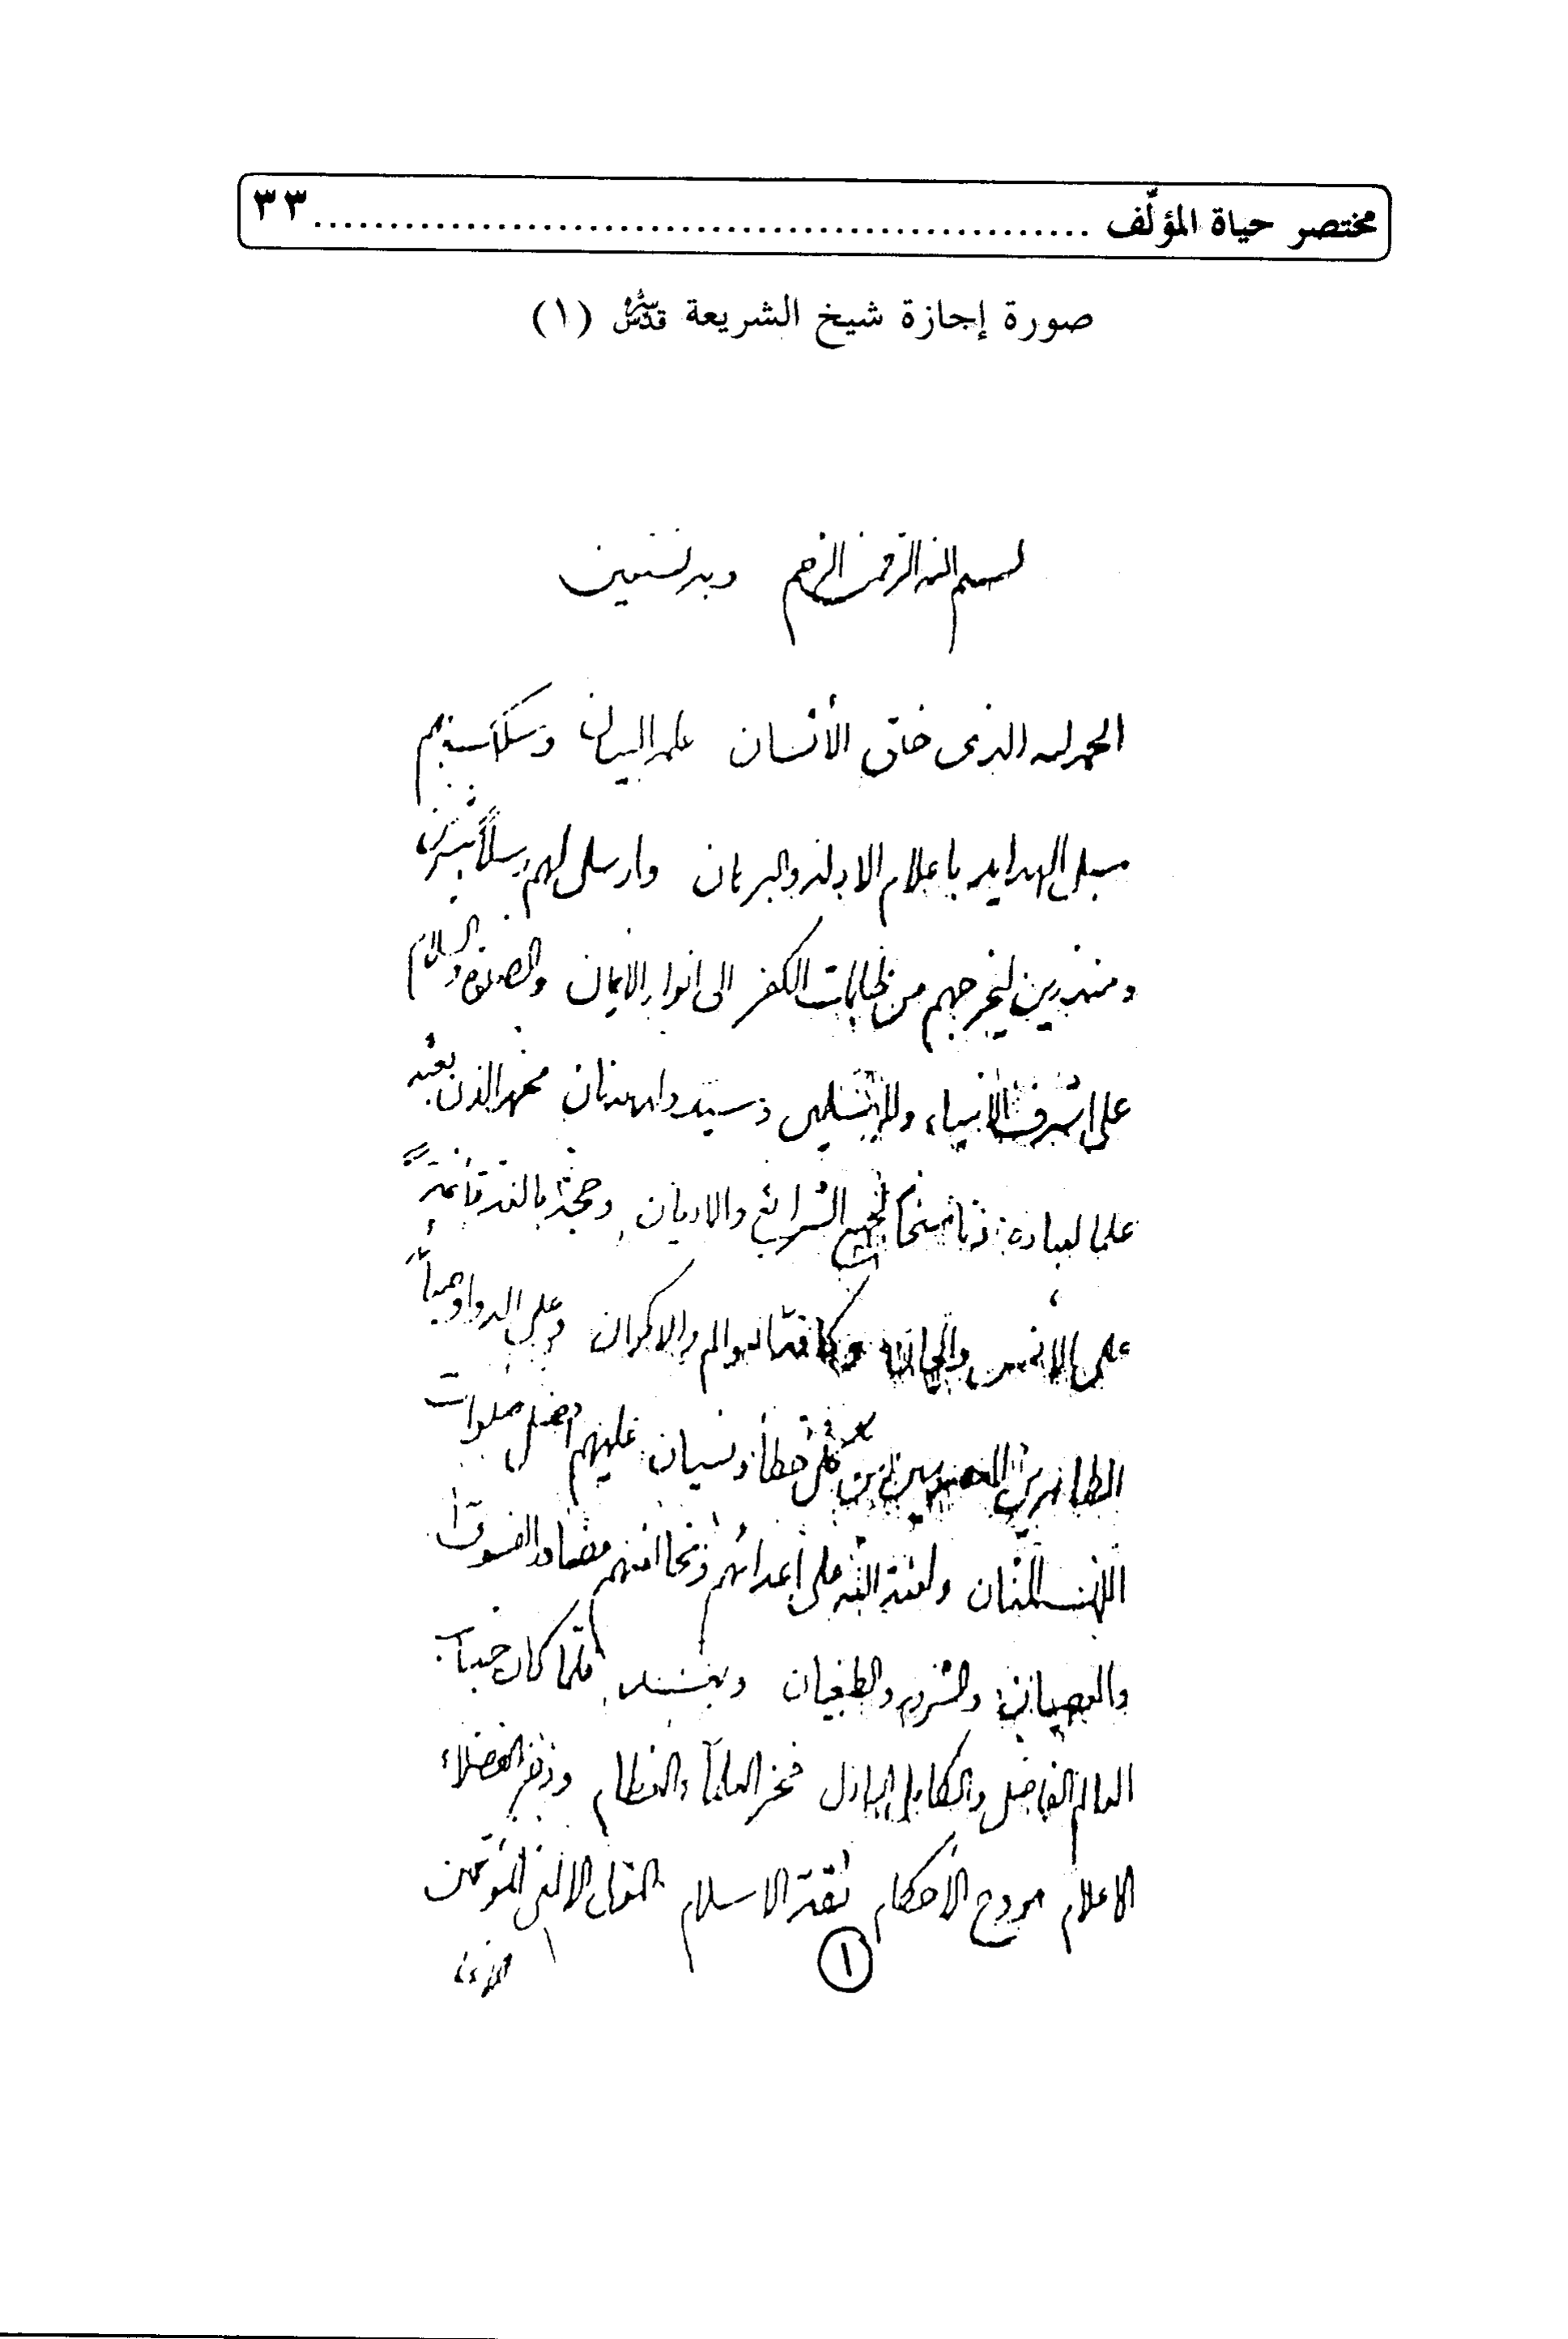 مختصر حياة المؤلّف ................................................ ٣٣
صورة إجازة شيخ الشريعة قدس سره (١)
بسم الله الرحمن الرحيم وبه نستعين
الحمد لله الذى خلق الأنسان علمه البيان
سبل الهدايه باعلام الادلة والبرهان وارسل لهم رسلاً مبشرين
ومنذرين ليخرجهم من ظلمات الكفر الى انوار الايمان والصلوة والسلام
على اشرف الانبياء والمرسلين وسيد ولد عدنان محمد الذى بعثه
علما لعباده وناسخاً لجميع الشرائع والاديان وحجة بالغة قائمة
على الانس والجان وكافة العوالم والاكوان وعلى اله واوصيائه
الطاهرين المعصومين من كل خطأ ونسيان عليهم افضل صلوات
الله المنان ولعنة الله على اعدائهم ومخالفيهم
والعصيان والشرور والطغيان وبعد فلما كان جناب
العالم الفاضل والكامل الباذل فخر العلماء العظام وذخر الفضلاء
الاعلام مروج الأحكام ثقة الاسلام المؤتمن
١